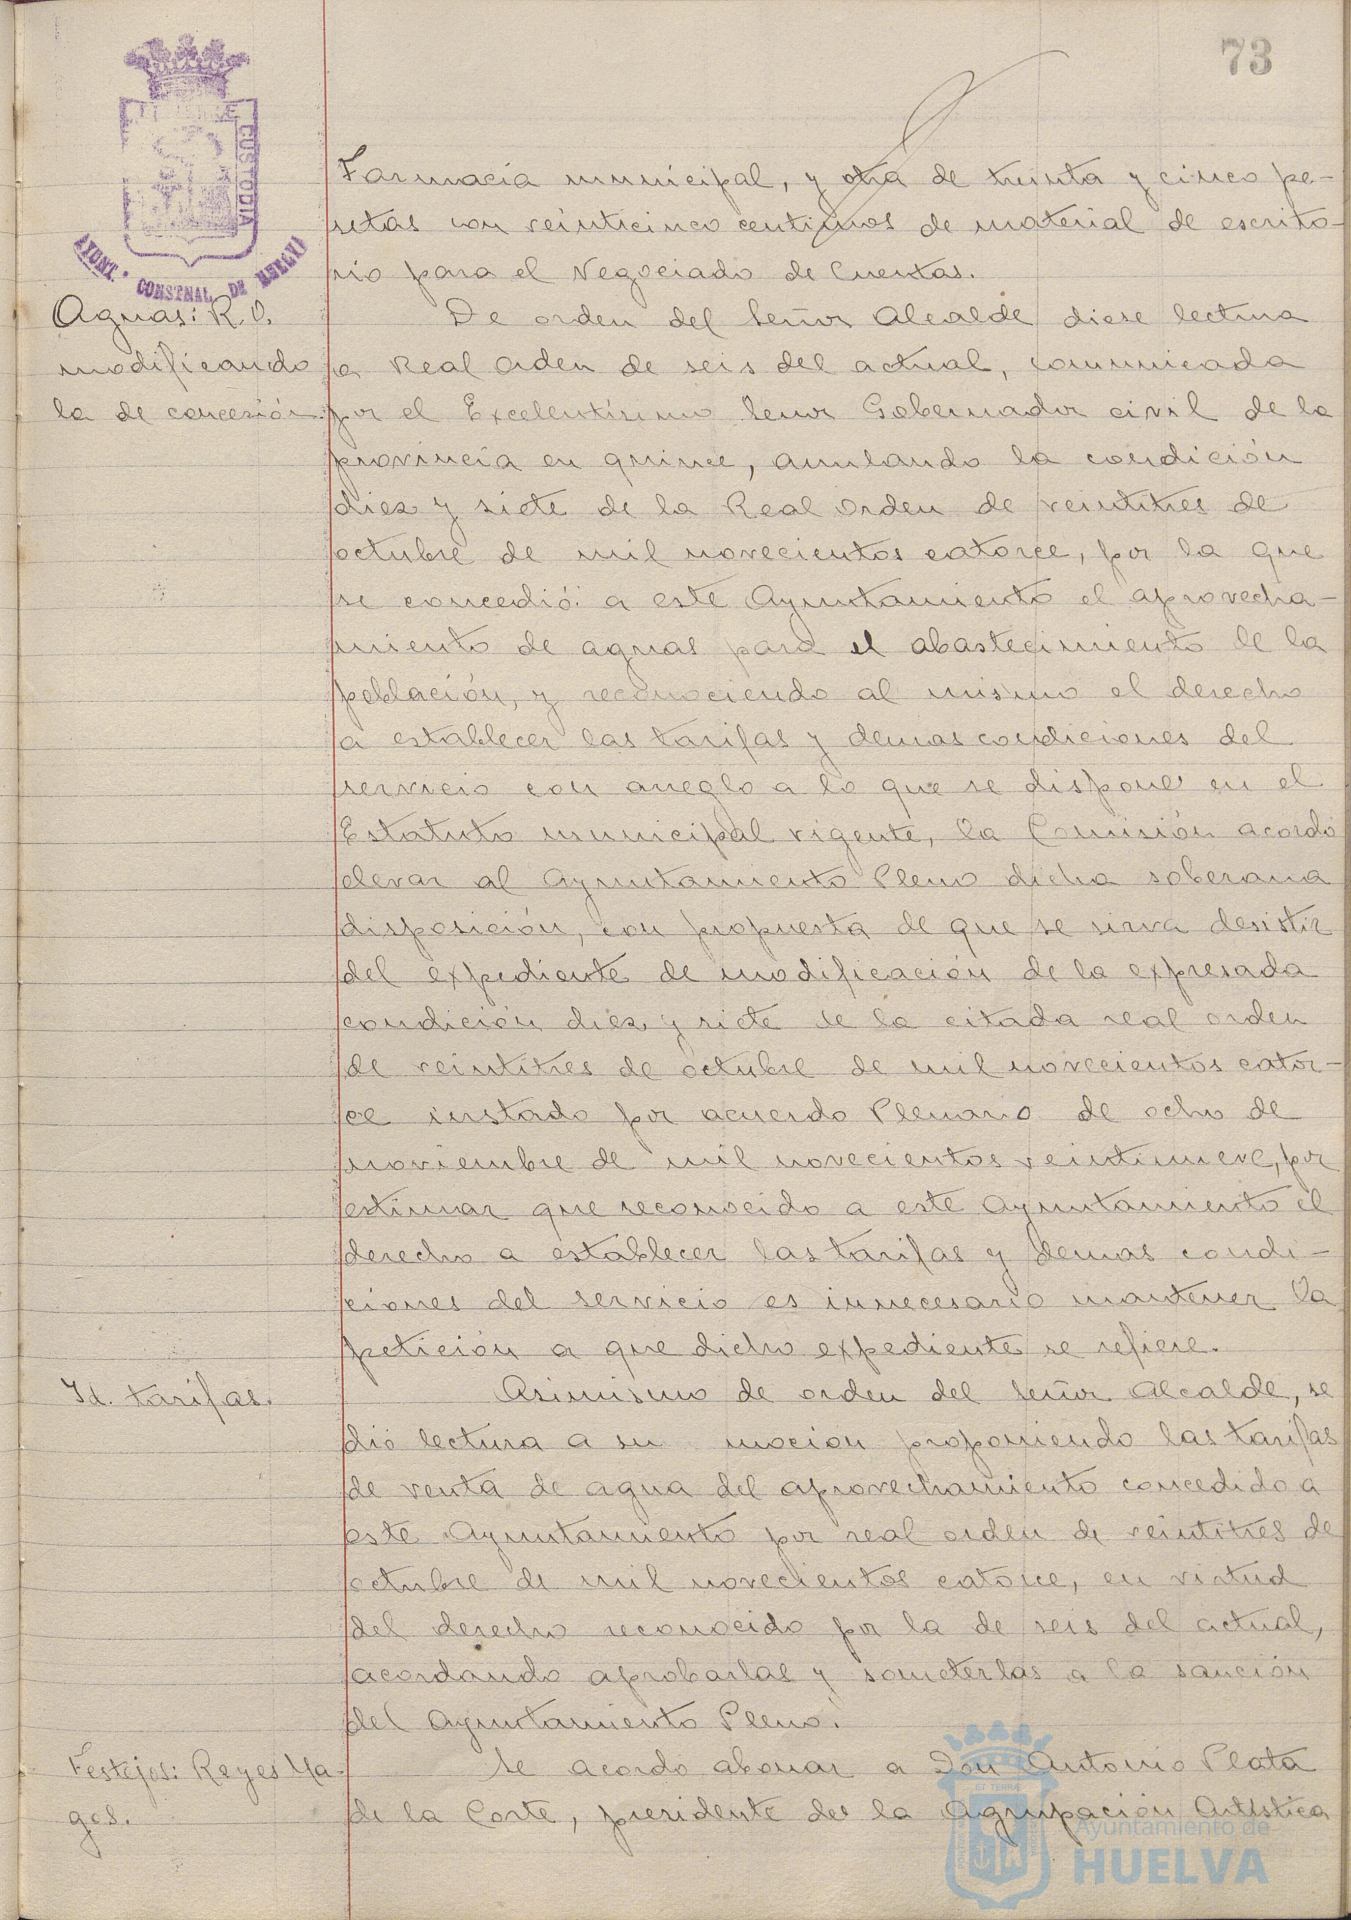 73
CUSTODIA
AYUNT. CONSTNAL DE HUELVA
Farmacia municipal, y otra de treinta y cinco pe-
setas con veinticinco centimos de material de escrito-
rio para el Negociado de Cuentas.
Aguas: R.O.
modificando
la de concesión.
De orden del Señor Alcalde diese lectura
a Real Orden de seis del actual, comunicada
por el Excelentísimo Senor Gobernador civil de la
provincia en quince, anulando la condición
diez y siete de la Real Orden de veintitres de
octubre de mil novecientos catorce, por la que
se concedió a este Ayuntamiento el aprovecha-
miento de aguas para el abastecimiento de la
población, y reconociendo al mismo el derecho
a establecer las tarifas y demas condiciones del
servicio con arreglo a lo que se dispone en el
Estatuto municipal vigente, la Comisión acordó
elevar al Ayuntamiento Pleno dicha soberana
disposición, con propuesta de que se sirva desistir
del expediente de modificación de la expresada
condición diez y siete de la citada real orden
de veintitres de octubre de mil novecientos cator-
ce instado por acuerdo Plenario de ocho de
noviembre de mil novecientos veintinueve, por
estimar que reconocido a este Ayuntamiento el
derecho a establecer las tarifas y demas condi-
ciones del servicio es innecesario mantener la
petición a que dicho expediente se refiere.
Id. tarifas.
Asimismo de orden del Señor Alcalde, se
dió lectura a su moción proponiendo las tarifas
de venta de agua del aprovechamiento concedido a
este Ayuntamiento por real orden de veintitres de
octubre de mil novecientos catorce, en virtud
del derecho reconocido por la de seis del actual,
acordando aprobarlas y someterlas a la sanción
del Ayuntamiento Pleno.
Festejos: Reyes Ma-
gos.
Se acordo abonar a Don Antonio Plata
de la Corte, presidente de la Agrupación Artística
Ayuntamiento de
HUELVA